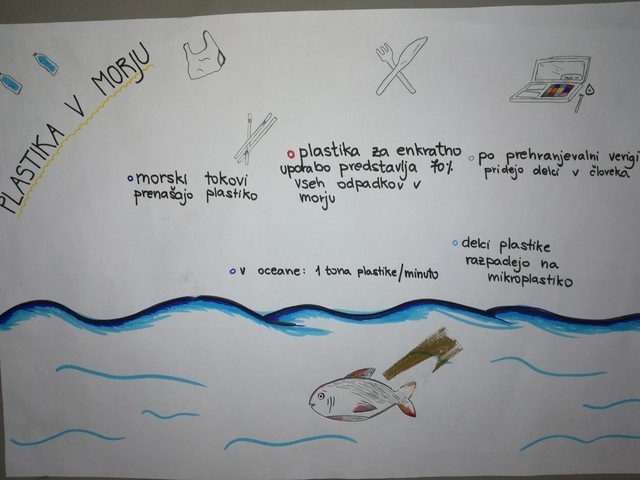 PLASTIKA V MORJU
morski tokovi
prenašajo plastiko
plastika za enkratno
uporabo predstavlja 70%
vseh odpadkov v
morju
po prehranjevalni verigi
pridejo delci v človeka
v oceane: 1 tona plastike/minuto
delci plastike
razpadejo na
mikroplastiko